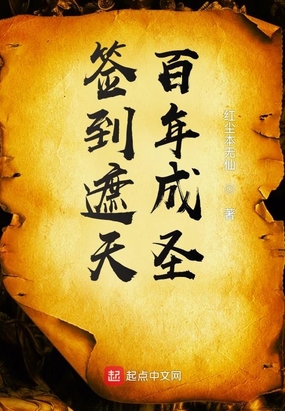 签到遮天
百年成圣
红尘本无仙 著
起 起点中文网